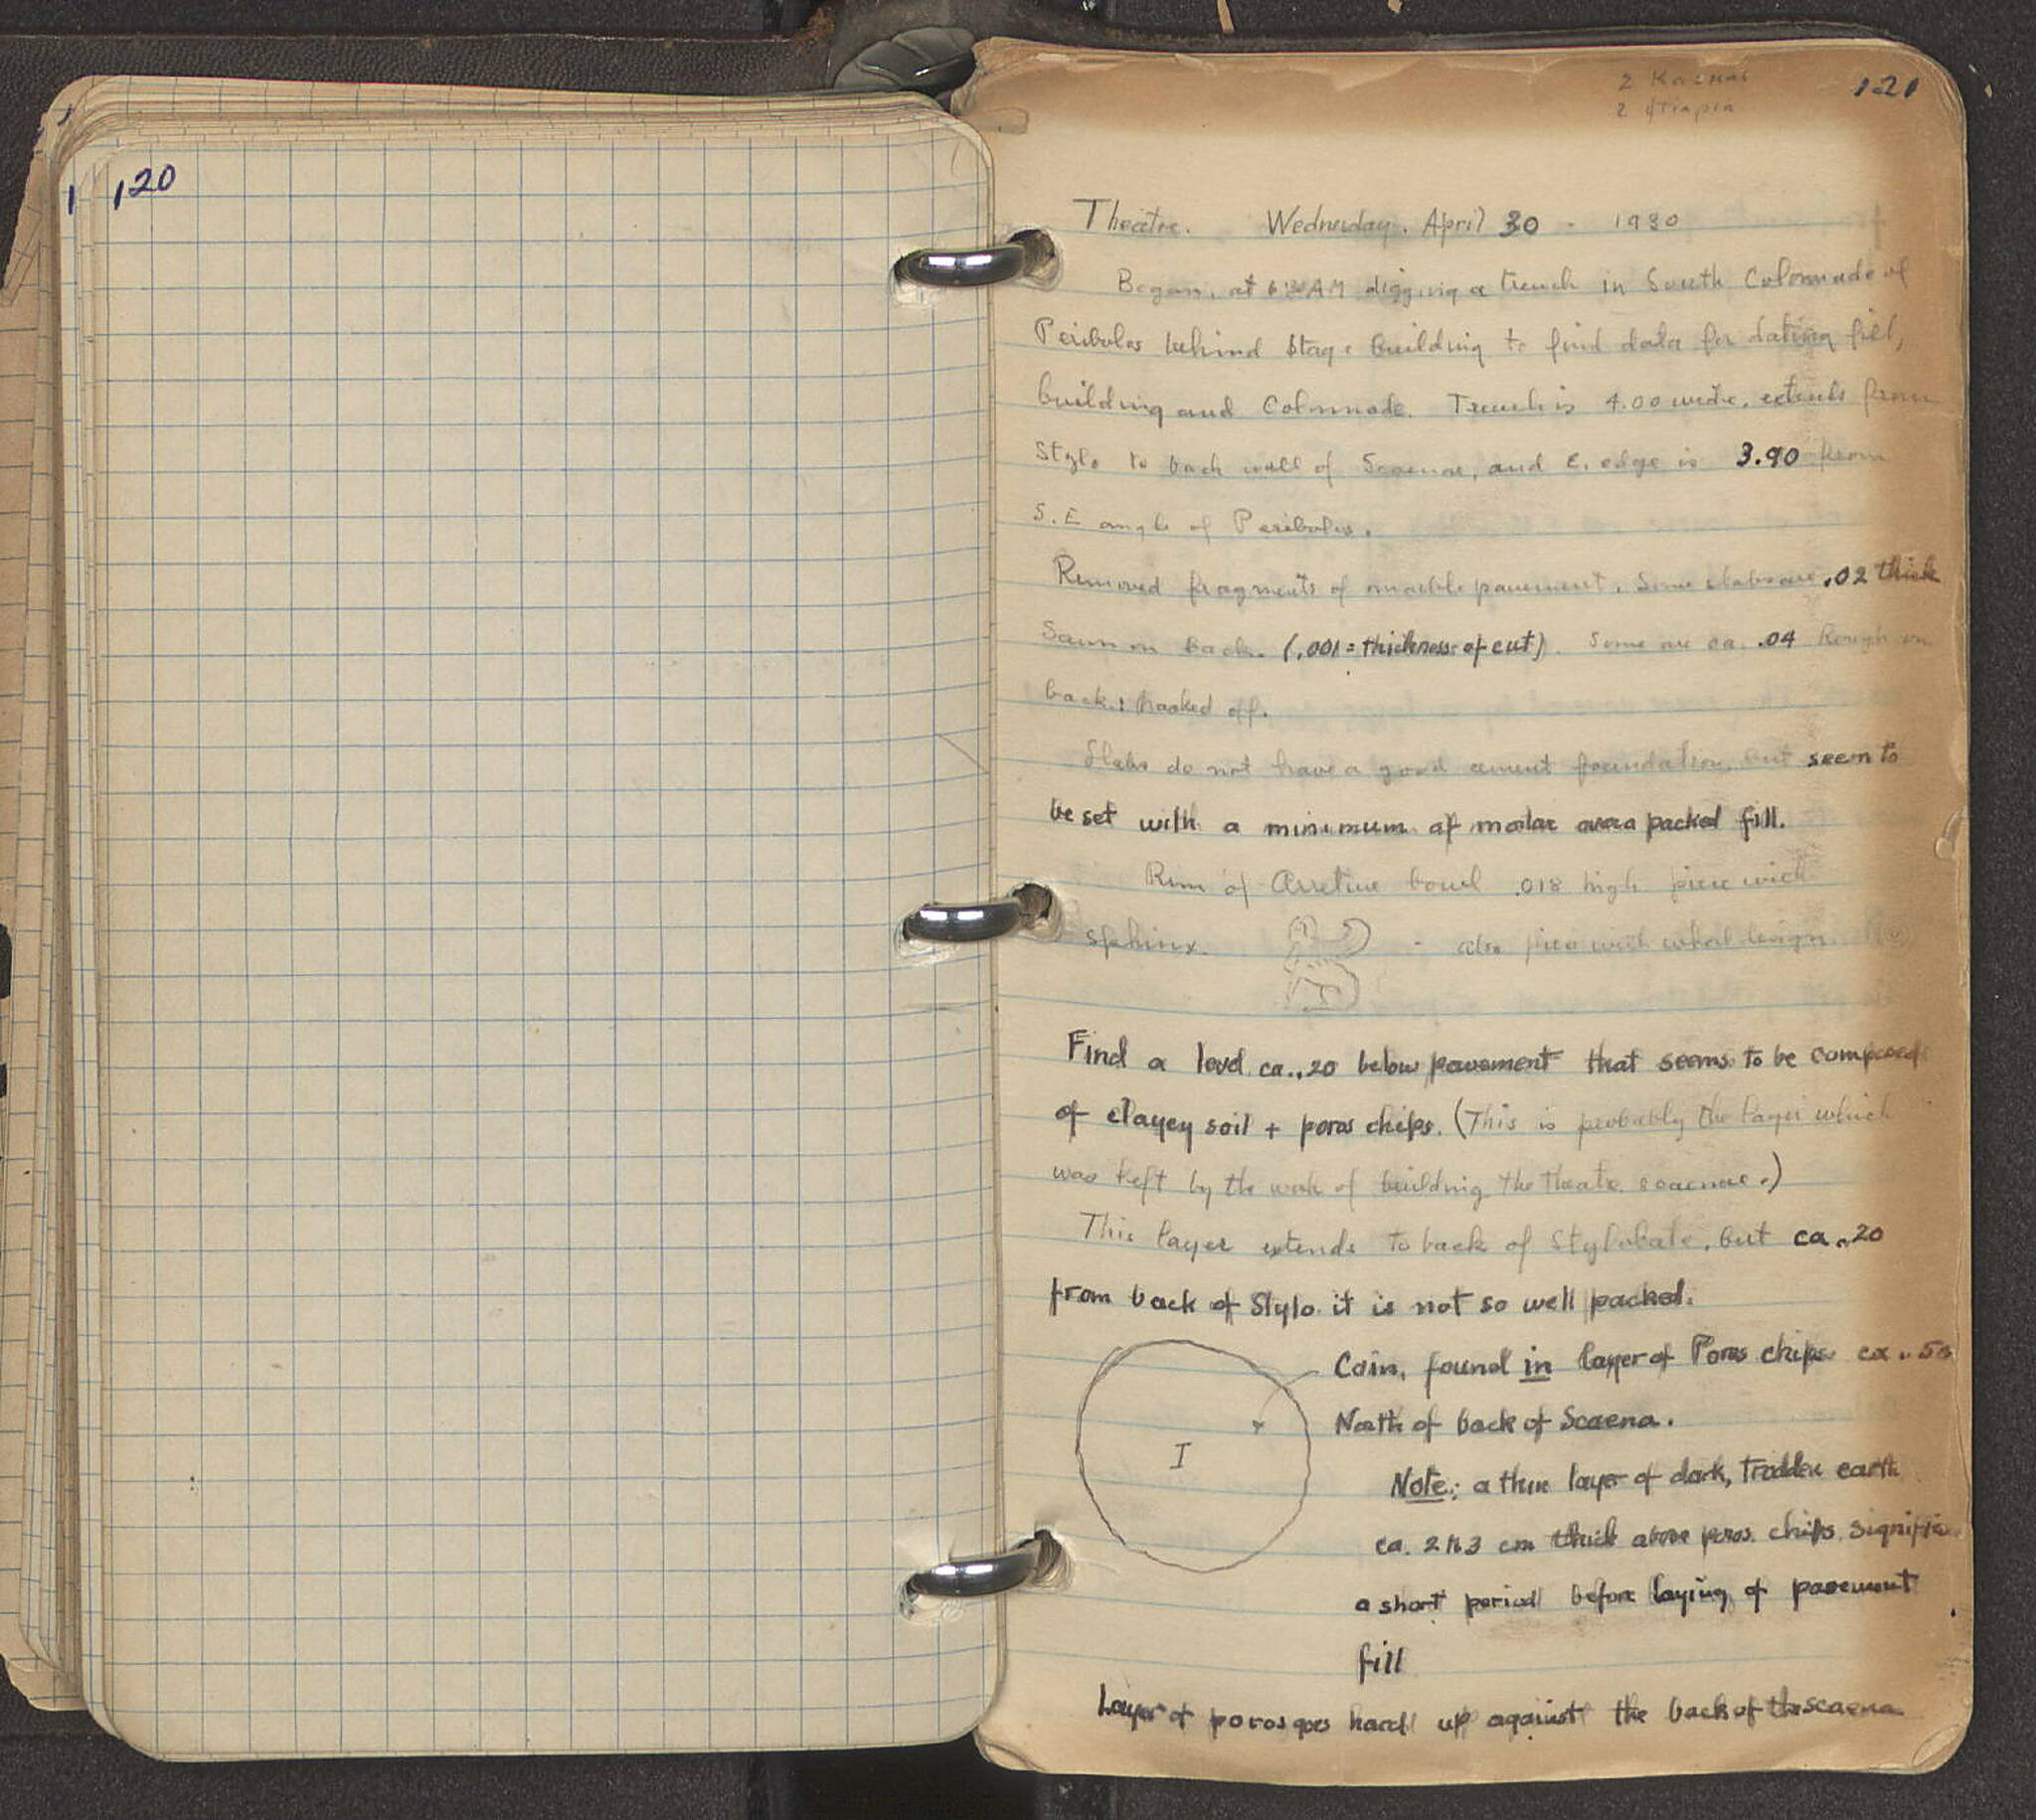 120
121
2
2
Theatre. Wednesday. April 30 - 1930
Began, at 6:30 AM digging a trench in South Colonnade of
Peribolos behind stage building to find data for dating fill,
building and Colonnade. Trench is 4.00 wide, extends from
Stylo to back wall of Scaenae, and E. edge is 3.90 from
S.E angle of Peribolos.
Removed fragments of marble pavement. Some slabs are .02 thick
Sawn on back. (.001 = thickness of cut). Some are ca. .04 Rough on
back: hacked off.
Slabs do not have a good cement foundation, but seem to
be set with a minimum of mortar over a packed fill.
Rim of Arretine bowl .018 high piece with
sphinx. - also piece with whorl design.
Find a level ca. .20 below pavement that seems to be composed
of clayey soil + poros chips. (This is probably the layer which
was left by the work of building the theatre scaenae.)
This layer extends to back of Stylobate, but ca. .20
from back of Stylo. it is not so well packed.
Coin, found in layer of Poros chips ca. .50
North of back of Scaena.
I
Note: a thin layer of dark, trodden earth
ca. 2 to 3 cm thick above poros chips. signifies
a short period before laying of pavement
fill
Layer of poros goes hard up against the back of the scaena